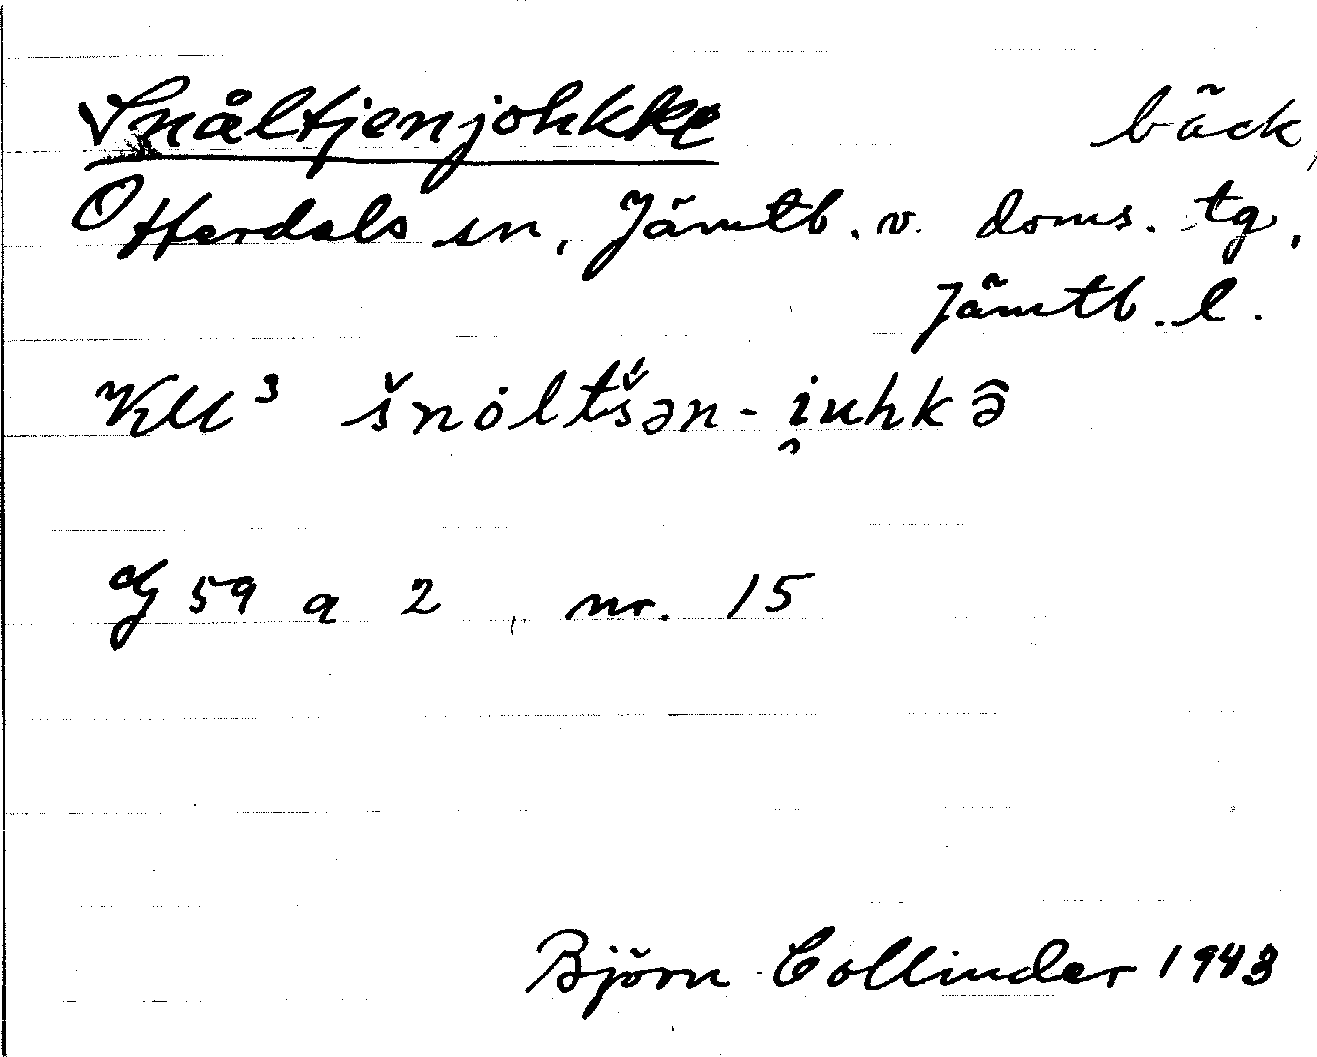 Snåltjenjohkke bäck,
Offerdals sn, Jämtb. v. doms. tg,
Jämtb. l.
KU³ šnòltš́ən-i̯uhkə̂
59 a 2, nr. 15
Björn Collinder 1943